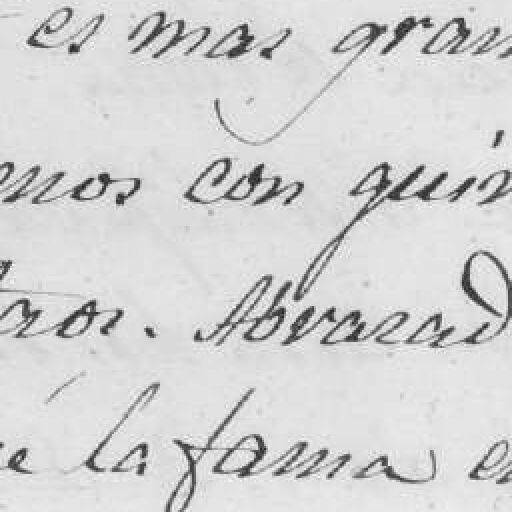 es mas gran
enos con quin
tros. Abrasad
é la fama en